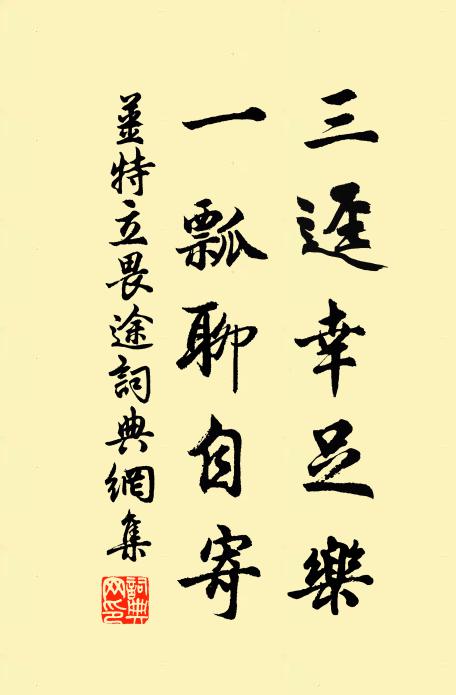 三逕幸足樂
一瓢聊自寄
姜特立畏途詞典網集